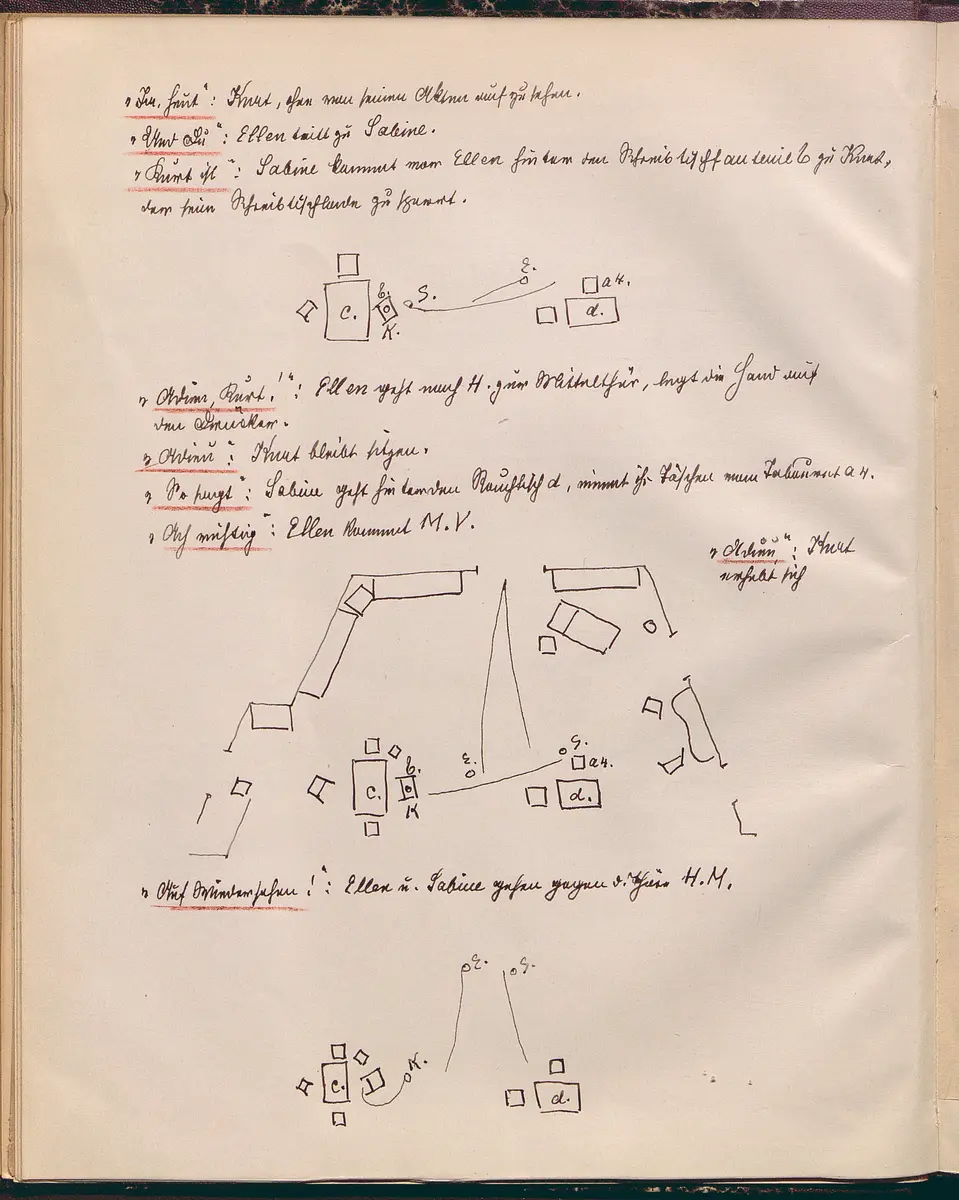 „Ja, heut“: Kurt, ohne von seinen Akten aufzusehen.
„Und Du“: Ellen tritt zu Sabine.
„Kurt ist“: Sabine kommt vor Ellen hinter den Schreibtischfauteuil b zu Kurt,
der sein Schreibtischlade zusperrt.
E.
a4.
b. S.
c. d.
K.
„Adieu, Kurt!“: Ellen geht nach H. zur Mittelthür, legt die Hand auf
den Drücker.
„Adieu“: Kurt bleibt sitzen.
„So sagt“: Sabine geht hinter den Rauchtisch d, nimmt ihr Täschchen vom Tabouret a4.
„Ach richtig“: Ellen kommt M.V.
„Adieu“: Kurt
erhebt sich
S.
E. a4.
b.
c. d.
K
„Auf Wiedersehen!“: Ellen u. Sabine gehen gegen d. Thüre H.M.
E. S.
K.
c. d.